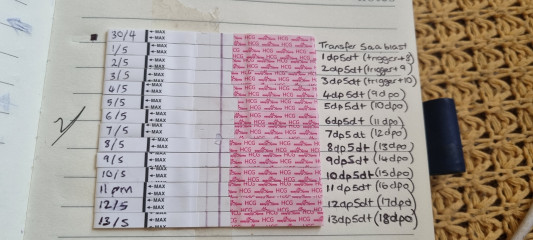 Transfer 5aa blast
30/4 MAX HCG
1/5 MAX HCG 1dp5dt (trigger+8)
2/5 MAX HCG 2dp5dt (trigger+9)
3/5 MAX HCG 3dp5dt (trigger+10)
4/5 MAX HCG 4dp5dt (9dpo)
5/5 MAX HCG 5dp5dt (10dpo)
6/5 MAX HCG 6dp5dt (11dpo)
7/5 MAX HCG 7dp5dt (12dpo)
8/5 MAX HCG 8dp5dt (13dpo)
9/5 MAX HCG 9dp5dt (14dpo)
10/5 MAX HCG 10dp5dt (15dpo)
11 pm MAX HCG 11dp5dt (16dpo)
12/5 MAX HCG 12dp5dt (17dpo)
13/5 MAX HCG 13dp5dt (18dpo)